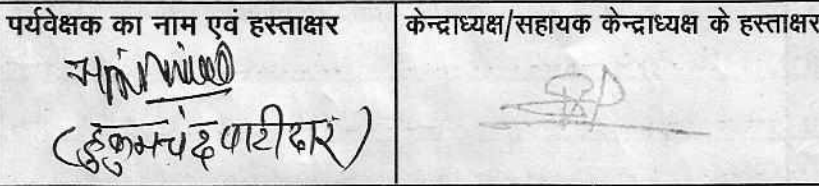 पर्यवेक्षक का नाम एवं हस्ताक्षर
केन्द्राध्यक्ष/सहायक केन्द्राध्यक्ष के हस्ताक्षर
(हुकुमचंद पाटीदार)